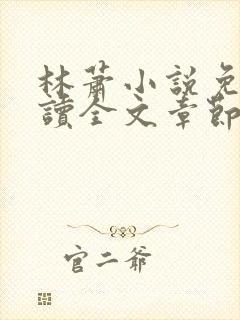 林蕭小說免
讀全文章節
官二爺